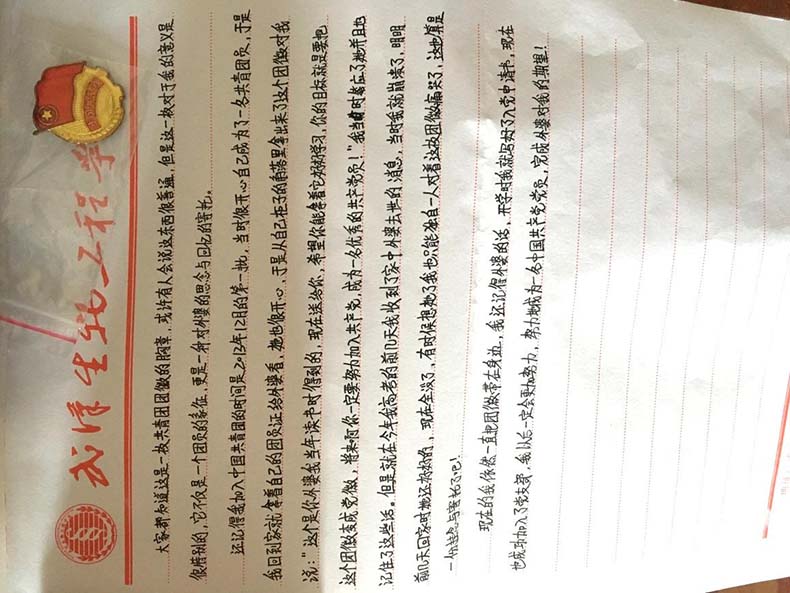 武汉生物工程学
大家都知道这是一枚共青团团徽的胸章，或许有人会说这东西很普通，但是这一枚对于我的意义是
很特别的，它不仅是一个团员的象征，更是一种对外婆的思念与回忆的寄托。
还记得我加入中国共青团的时间是2013年12月的第一批，当时很开心自己成为了一名共青团员，于是
我回到家就拿着自己的团员证给外婆看，她也很开心，于是从自己柜子的角落里拿出来了这个团徽对我
说："这个是你外婆我当年读书时得到的，现在送给你，希望你能拿着它好好学习，你的目标就是要把
这个团徽变成党徽，将来你一定要努力加入共产党，成为一名优秀的共产党员！"我当时答应了她并且把
记住了这些话。但是就在今年我高考的前几天我收到了家中外婆去世的消息，当时我就崩溃了，明明
前几天回家时她还挺好的，现在全没了，有时候想她了我也只能独自一人对着这枚团徽痛哭了，这也算是
一份想念与寄托了吧！
现在的我依然一直把团徽带在身边，我还记得外婆的话，开学时我就写好了入党申请书，现在
也成功加入了党支部，我以后一定会更加努力，努力地成为一名中国共产党党员，完成外婆对我的期望！